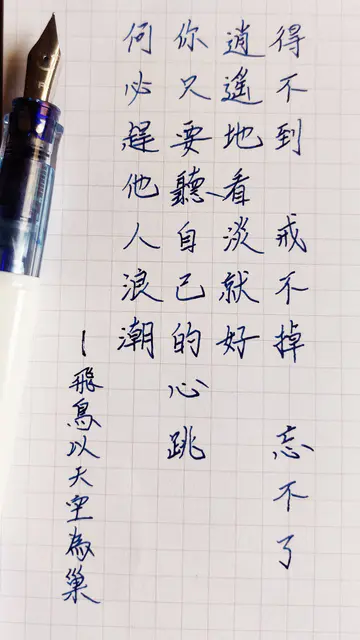 得不到 戒不掉 忘不了
逍遙地看淡就好
你只要聽自己的心跳
何必趕他人浪潮
—飛鳥以天空為巢
F